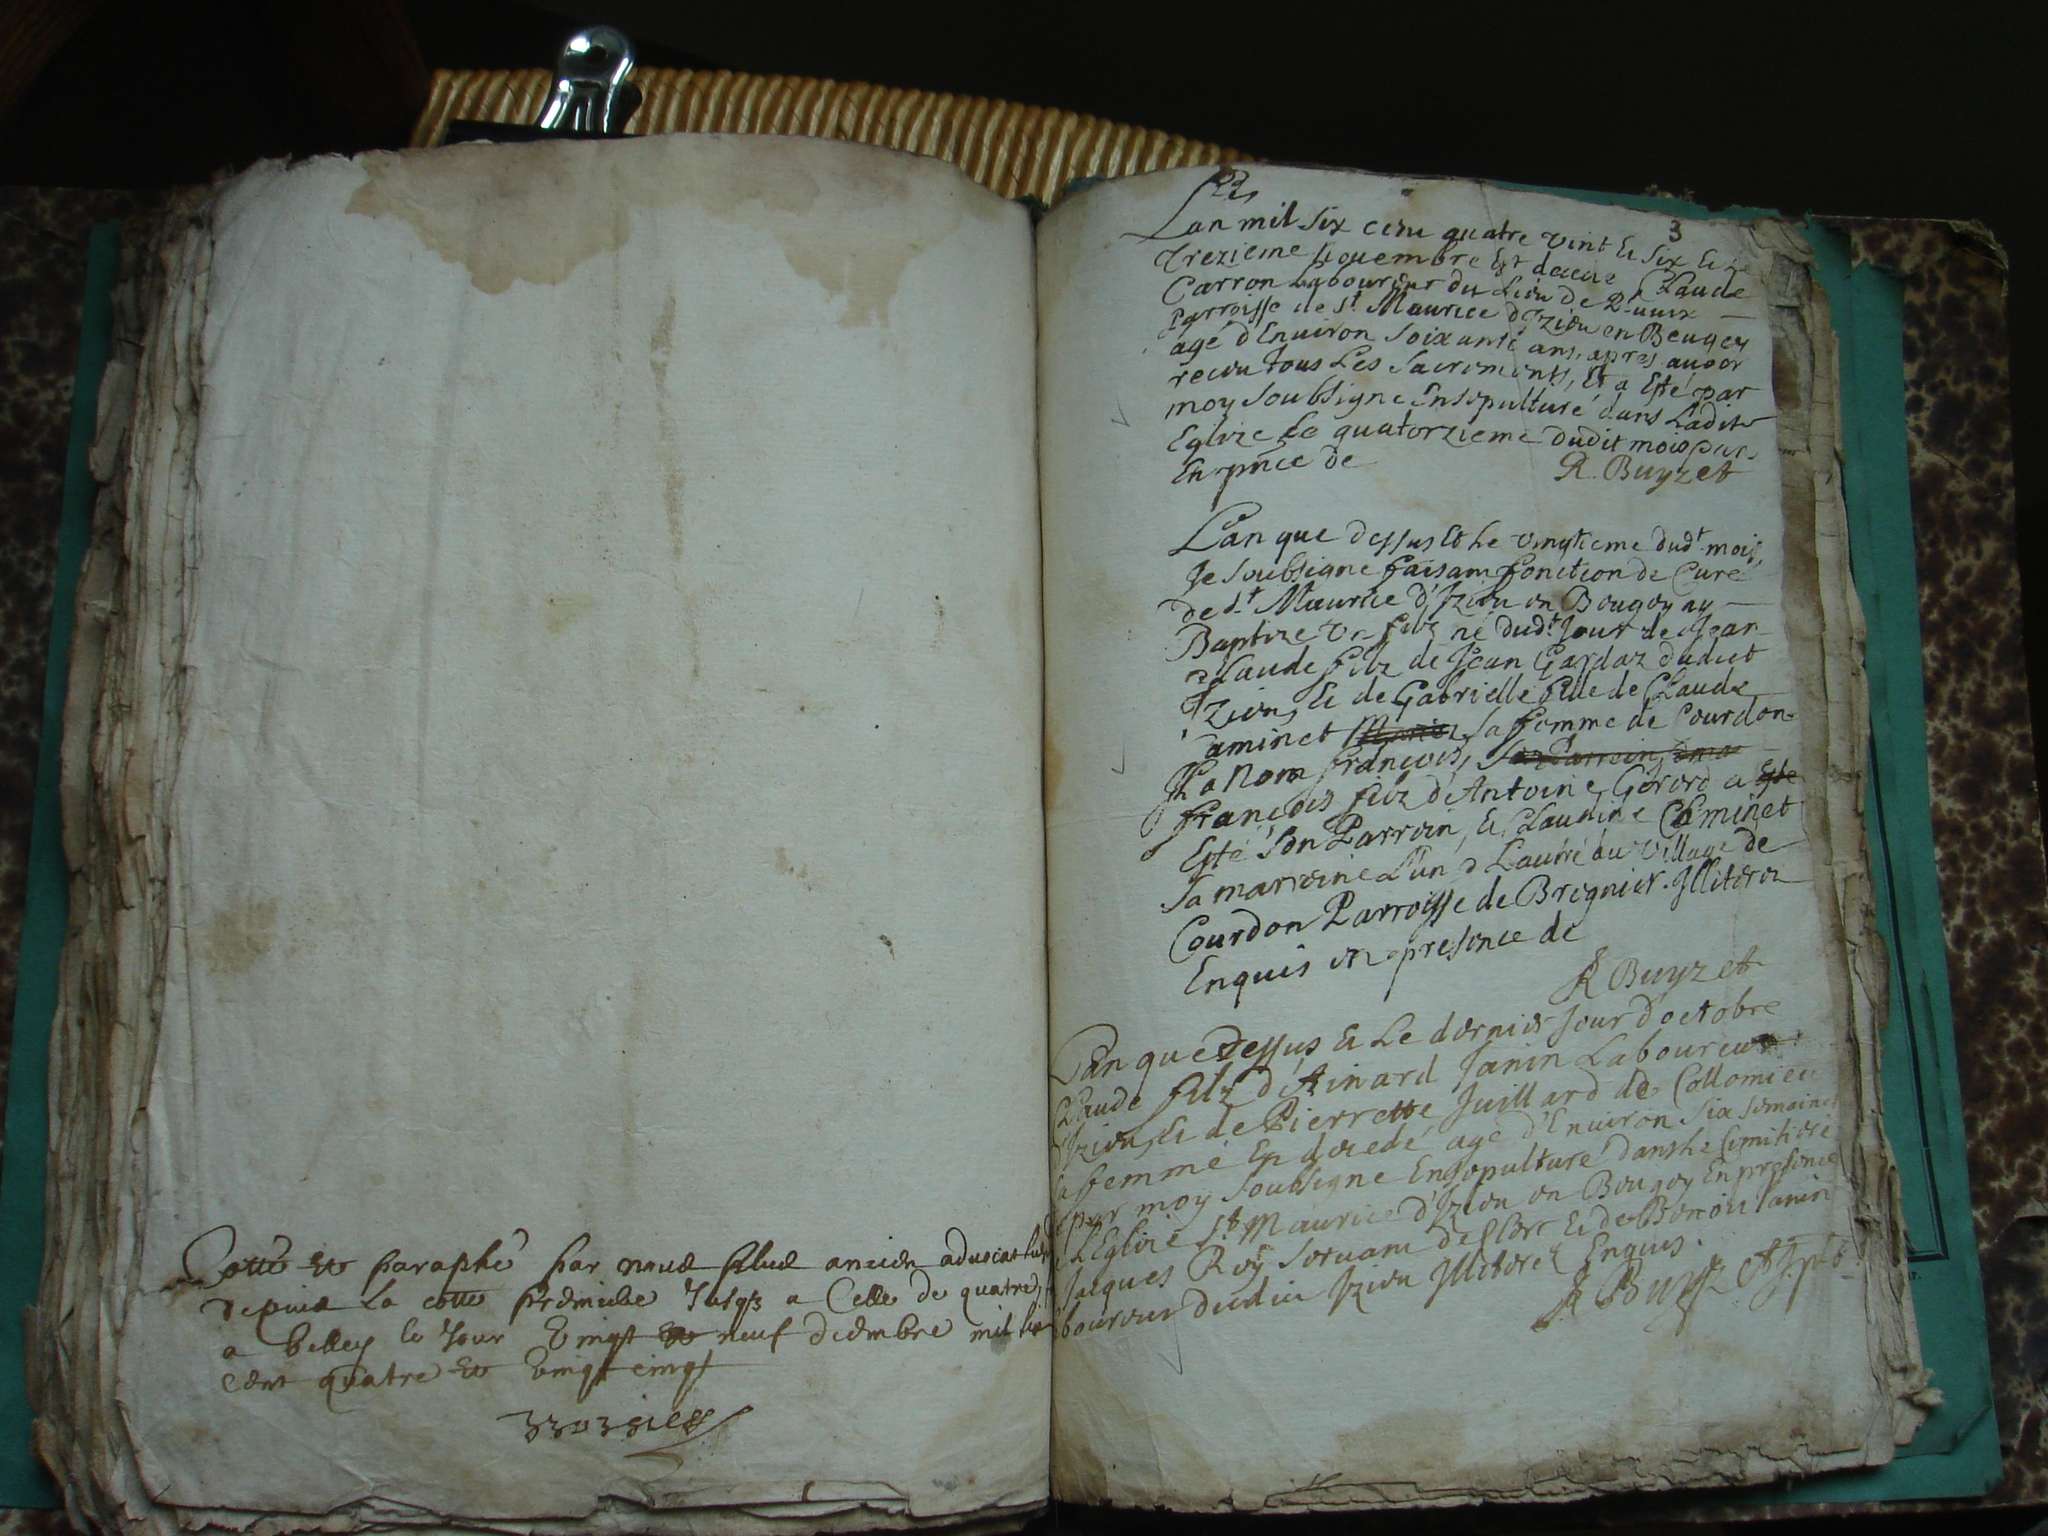 Cotté et paraphé par nous plus ancien aduocat
depuis la cotte premiere Jusqs a Celle de quatre
a belley le Jour vingt et neuf decembre mil six
cent quatre et vingt cinq
3
Lan mil six cent quatre vint et six et le
Trezieme Nouembre Est decede Claude
Carron Laboureur du Lieu de
Parroisse de St Maurice d'Izieu en Beugey
agé d'Enuiron soixante ans, apres auoor
receu tous Les sacrements, Et a Esté par
moy soubsigne Ensepulturé dans Ladite
Eglize Le quatorzieme dudit mois
En pnce de R. Buyzet
L'an que dessus Et Le vingtieme dudt mois
Je soubsigne faisant fonction de Curé
de St Maurice d'Izieu en Bougey ay
Baptize Un filz né dudt Jour de Jean
Claude filz de Jean Gardaz dudict
Izieu, et de Gabrielle fille de Claude
aminet sa femme de Courdon
Il a Nom françois,
françois filz d'Antoine Gerord a Esté
Esté son Parrein, et Claudine Cheminet
sa marreine L'un & L'autre du village de
Courdon Parroisse de Bregnier. Illiterez
Enquis en presence de
R Buyzet
L'an que Dessus et Le dernier Jour d'octobre
Claude filz d'Ainard Janin Laboureur
d'Izieu, et de Pierrette Juillard de Collomieu
sa femme Est decedé agé d'Enuiron six semaines
par moy soubsigne Ensepulturé dans le Cemitiere
L'Eglize St Maurice d'Izieu en Bougey En presence
Jacques Rey seruant de Clerc et de Benoit Janin
boureur dudict Izieu Illiterez Enquis.
R Buyzet